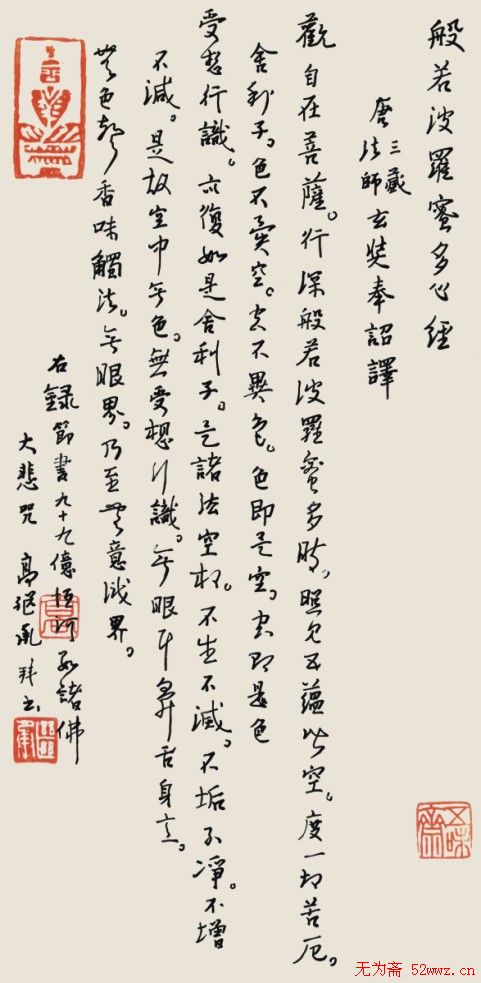 般若波羅蜜多心經
唐三藏法師玄奘奉詔譯
觀自在菩薩。行深般若波羅蜜多時。照見五蘊皆空。度一切苦厄。
舍利子。色不異空。空不異色。色即是空。空即是色
受想行識。亦復如是舍利子。是諸法空相。不生不滅。不垢不淨。不增
不減。是故空中無色。無受想行識。無眼耳鼻舌身意。
無色聲香味觸法。無眼界。乃至無意識界。
右錄節書九十九億恒河沙諸佛
大悲咒 高 拜书
五味齋
无为斋 52wwz.cn